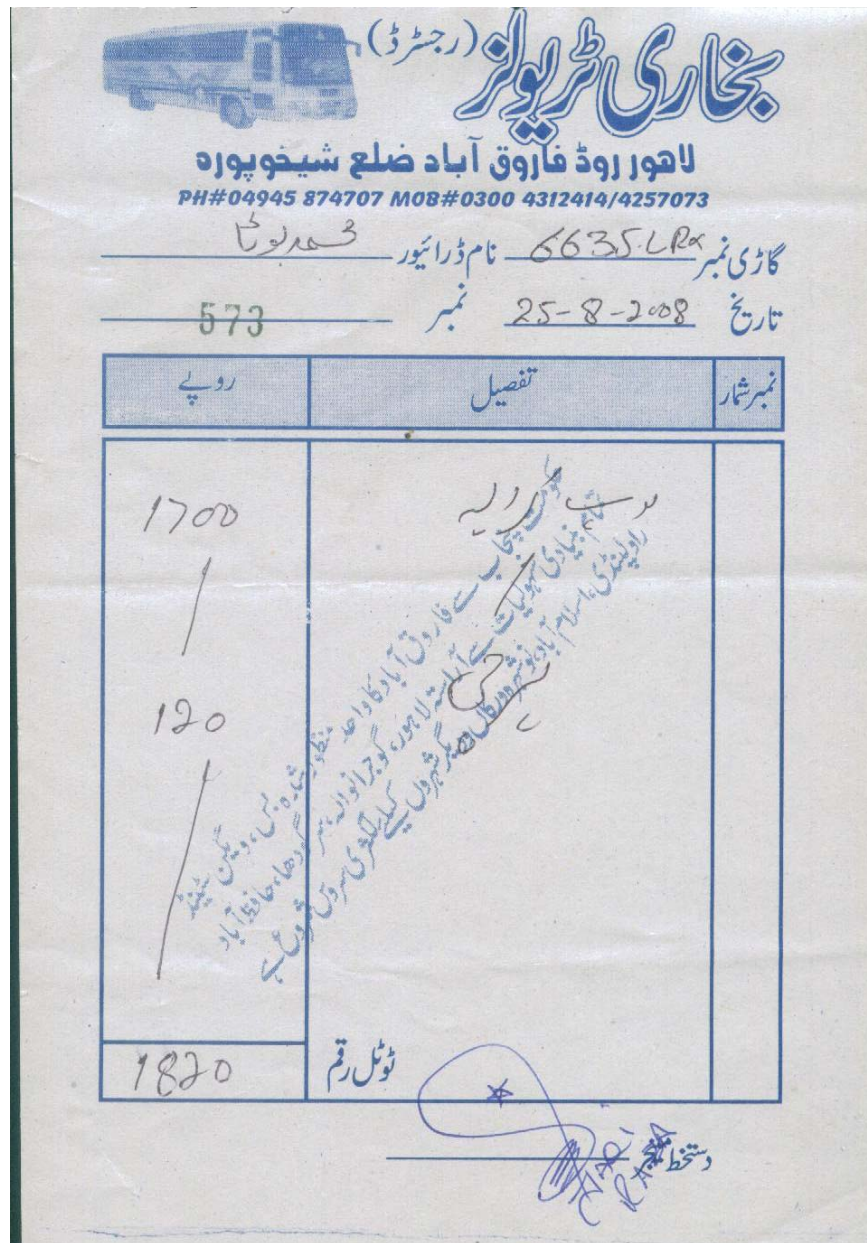 بخاری ٹریولز (رجسٹرڈ)
لاھور روڈ فاروق آباد ضلع شیخوپورہ
PH#04945 874707 MOB#0300 4312414/4257073
گاڑی نمبر 6635 نام ڈرائیور محمد بوٹا
تاریخ 25-8-2008 نمبر 573
نمبر شمار تفصیل روپے
کرایہ 1700
پرچی 120
حکومت پنجاب سے فاروق آباد کا واحد منظور شدہ بس، ویگن سٹینڈ
تمام بنیادی سہولیات سے آراستہ لاہور، گوجرانوالہ، سرگودھا، حافظ آباد
راولپنڈی، اسلام آباد، نوشہرہ ورکاں و دیگر شہروں کیلئے لگژری سروس شروع ہے
ٹوٹل رقم 1820
دستخط منیجر